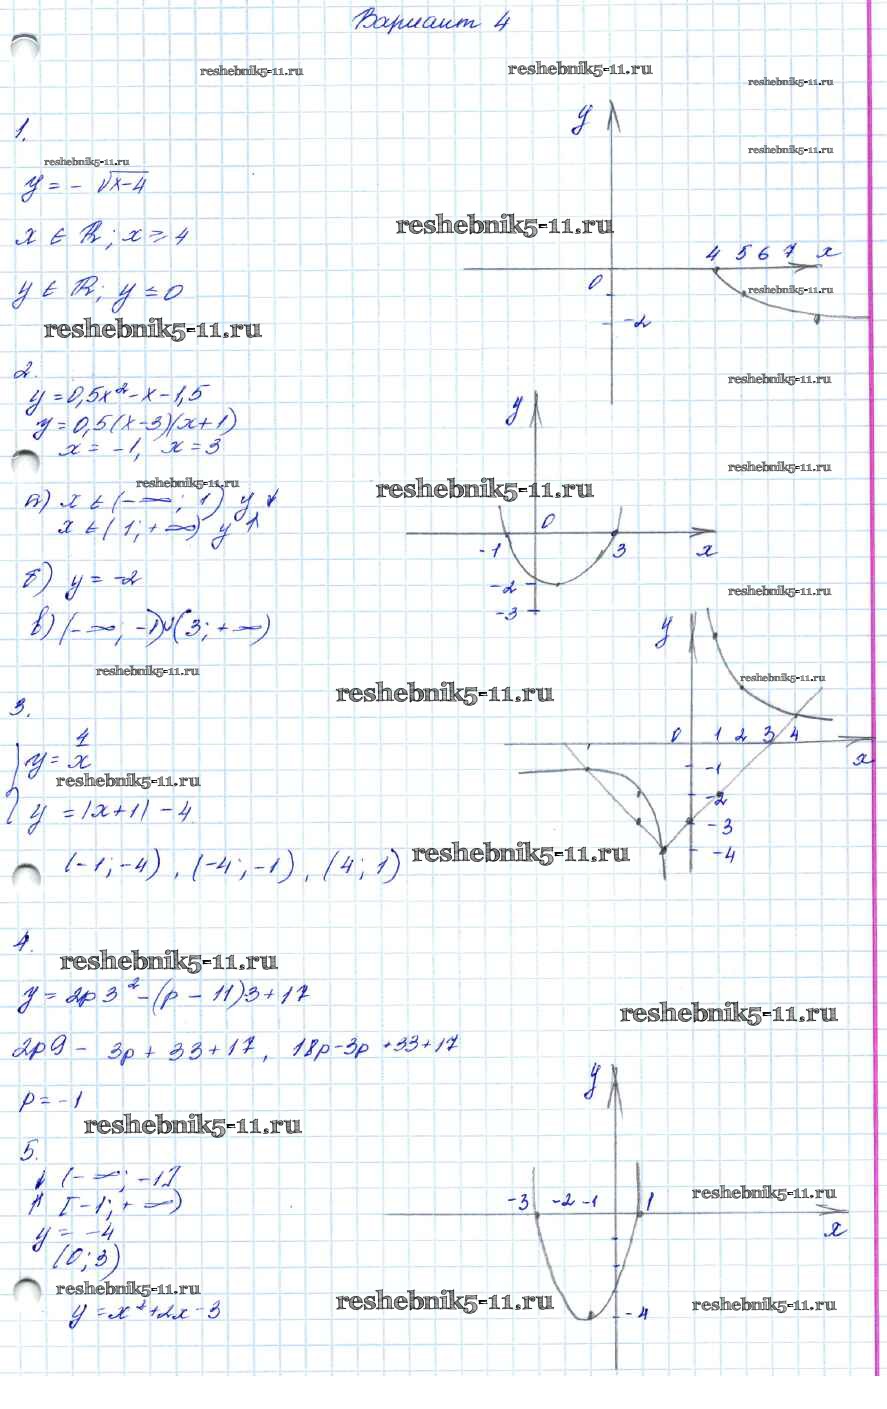 Вариант 4
reshebnik5-11.ru
reshebnik5-11.ru
reshebnik5-11.ru
1.
reshebnik5-11.ru
reshebnik5-11.ru
y = - √x-4
reshebnik5-11.ru
x ∈ R; x ≥ 4
y ∈ R; y ≤ 0
reshebnik5-11.ru
y
4 5 6 7 x
0
reshebnik5-11.ru
-2
2.
y = 0,5x² - x - 1,5
y = 0,5(x-3)(x+1)
x = -1, x = 3
reshebnik5-11.ru
reshebnik5-11.ru
reshebnik5-11.ru
reshebnik5-11.ru
а) x ∈ (-∞; 1) y ↓
x ∈ (1; +∞) y ↑
б) y = -2
в) (-∞; -1)∪(3; +∞)
y
0
-1 3 x
-2
-3
reshebnik5-11.ru
reshebnik5-11.ru
reshebnik5-11.ru
reshebnik5-11.ru
3.
y = 4/x
reshebnik5-11.ru
y = |x+1| - 4
(-1; -4), (-4; -1), (4; 1)
reshebnik5-11.ru
y
0 1 2 3 4
x
-1
-2
-3
-4
4.
reshebnik5-11.ru
y = 2p3² - (p - 11)3 + 17
reshebnik5-11.ru
2p9 - 3p + 33 + 17, 18p - 3p + 33 + 17
p = -1
reshebnik5-11.ru
5.
↓ (-∞; -1]
↑ [-1; +∞)
y = -4
(0; 3)
reshebnik5-11.ru
y = x² + 2x - 3
y
-3 -2 -1 1
x
-4
reshebnik5-11.ru
reshebnik5-11.ru
reshebnik5-11.ru